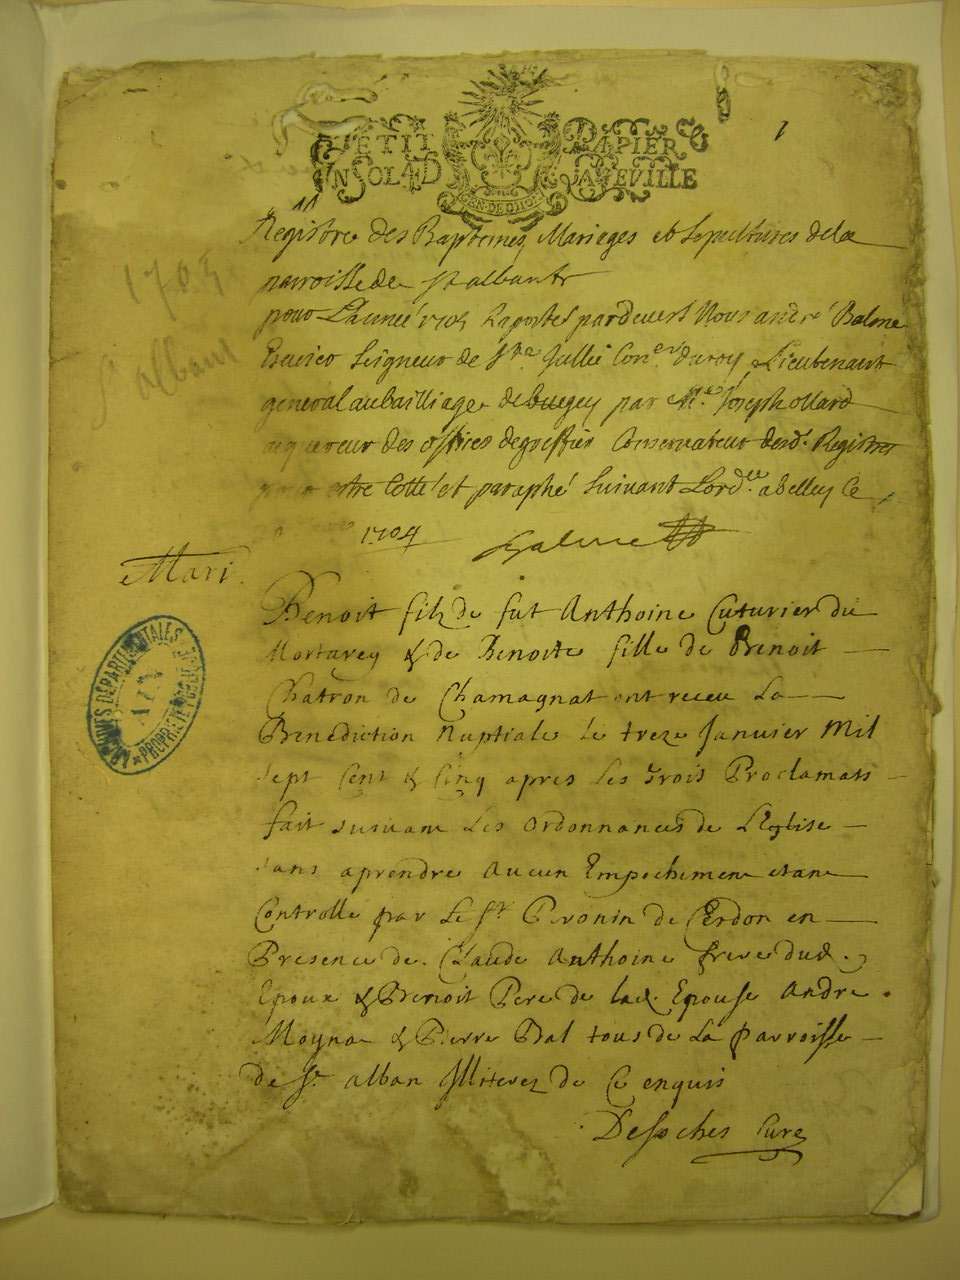 PETIT PAPIER
UN SOL A D LA FEVILLE
GEN. DE DIION
1
Registre des Baptemes Marieges et Sepultures de la
parroisse de St alban
pour L'année 1705 Raportés pardevers Nous andré Balme
Escuier Seigneur de Ste Jullie Coner du roy Lieutenant
general au bailliage de bugey par Me Joseph ollard
acquereur des offices de greffier Conservateur desd. Registres
pour estre Cotté et paraphé Suivant Lordce a Belley Ce
1704
Balme
1705
St alban
Mari.
Benoit filz de fut Anthoine Cuturier du
Mortarey & de Benoite fille de Benoit
Chatron de Chamagnat ont receu La
Benediction Nuptiale le treze Janvier Mil
sept Cent & Cinq apres les trois Proclamats
fait suivant les ordonnances de L'Eglise
sans aprendre Aucun Empechement etant
Controlle par Le Sr Peronin de Cerdon en
Presence de Claude Anthoine frere dud.
Epoux & Benoit Pere de lad. Epouse Andre
Moyne & Pierre Bal tous de La parroisse
de St alban Illiterez de Ce enquis
Desoches Cure
ARCHIVES DÉPARTEMENTALES
AIN
PROPRIÉTÉ PUBLIQUE